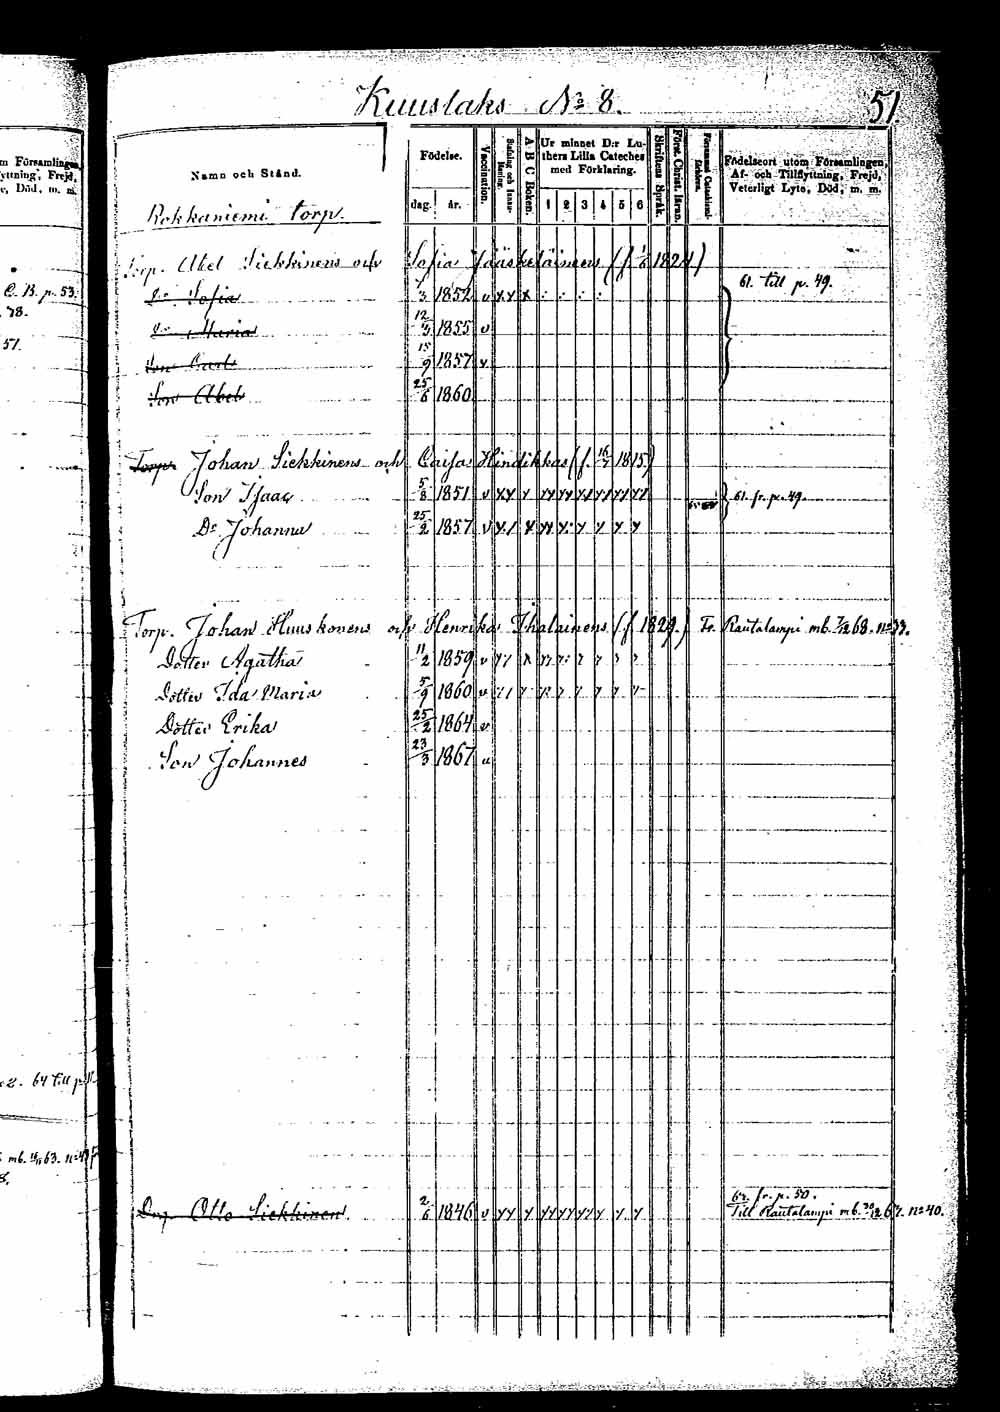 m Församlingen,
yttning, Frejd,
e, Död, m. m.
C. B. p. 53.
78.
51.
64 till p.
mb. 63. no
Kuuslaks No 8.
51.
Namn och Stånd.
Födelse.
dag. år.
Vaccination.
A B C Boken.
Ur minnet D:r Lu-
thers Lilla Cateches
med Förklaring.
1 2 3 4 5 6
Skriftens Språk.
Först. Christ. läran.
Födelseort utom Församlingen,
Af- och Tillflyttning, Frejd,
Veterligt Lyte, Död, m. m.
Rokkaniemi torp.
Torp. Abel Siekkinens och Sofia Jääskeläinens (f. 1824)
Dr Sofia 1852 v 61. till p. 49.
Dr Maria 12/3 1855 v
Son Carl 15/9 1857 v
Son Abel 25/6 1860
Torp. Johan Siekkinens och Caisas Hindikkas (f. 16/7 1815)
Son Isaac 5/8 1851 v 61. fr. p. 49.
Dr Johanna 25/2 1857 v
Torp. Johan Huuskonens och Henrika Ihalainens (f. 1829.) Fr. Rautalampi mb. 7/12 68. no 33.
Dotter Agatha 11/2 1859 v
Dotter Ida Maria 5/9 1860 v
Dotter Erika 25/2 1864 v
Son Johannes 23/3 1867 v
Drg. Otto Siekkinen 2/6 1846 v
62. fr. p. 50.
Till Rautalampi mb. 30/12 67. no 40.